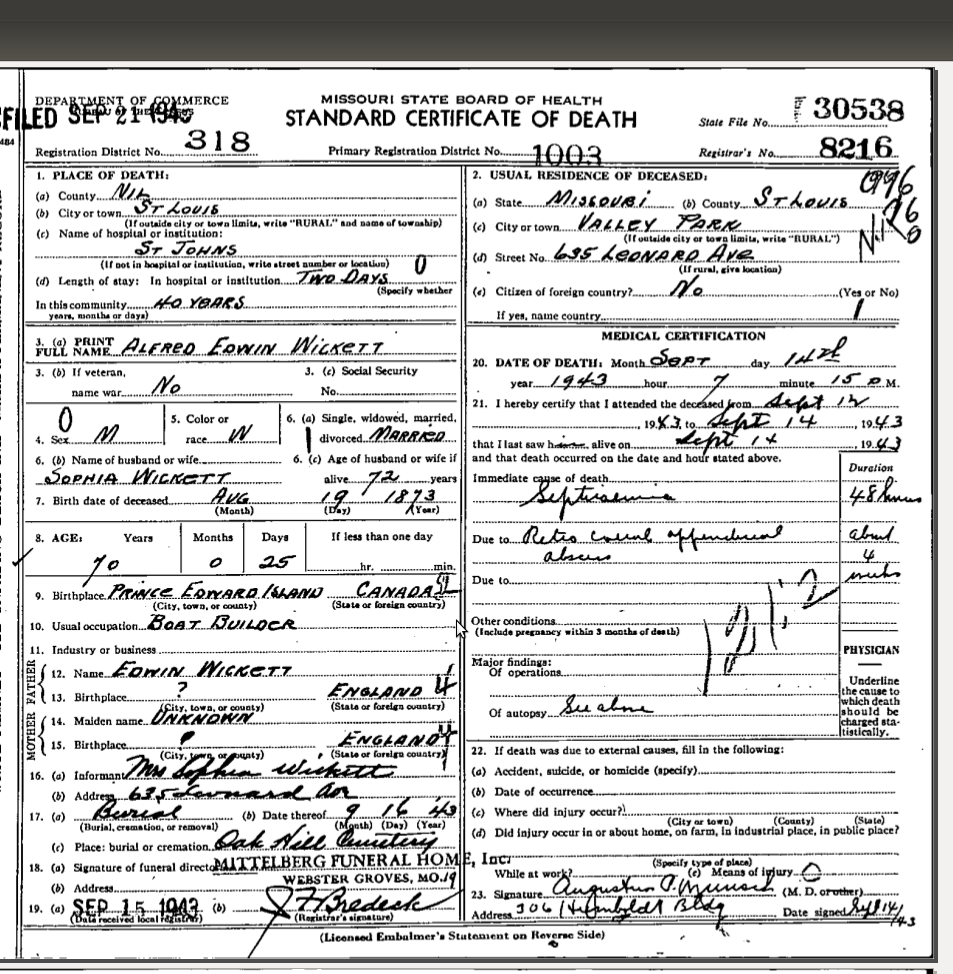 DEPARTMENT OF COMMERCE
FILED SEP 21 1943
MISSOURI STATE BOARD OF HEALTH
STANDARD CERTIFICATE OF DEATH
State File No. 30538
Registration District No. 318
Primary Registration District No. 1003
Registrar's No. 8216
1. PLACE OF DEATH:
(a) County NIL
(b) City or town ST LOUIS
(If outside city or town limits, write "RURAL" and name of township)
(c) Name of hospital or institution:
ST JOHNS
(If not in hospital or institution, write street number or location)
(d) Length of stay: In hospital or institution TWO DAYS
(Specify whether
In this community 40 YEARS
years, months or days)
3. (a) PRINT
FULL NAME ALFRED EDWIN WICKETT
3. (b) If veteran,
name war No
3. (c) Social Security
No.
4. Sex M
5. Color or
race W
6. (a) Single, widowed, married,
divorced MARRIED
6. (b) Name of husband or wife
SOPHIA WICKETT
6. (c) Age of husband or wife if
alive 72 years
7. Birth date of deceased AUG 19 1873
(Month) (Day) (Year)
8. AGE: Years Months Days If less than one day
70 0 25 hr. min.
9. Birthplace PRINCE EDWARD ISLAND CANADA
(City, town, or county) (State or foreign country)
10. Usual occupation BOAT BUILDER
11. Industry or business
FATHER
12. Name EDWIN WICKETT
13. Birthplace ? ENGLAND
(City, town, or county) (State or foreign country)
MOTHER
14. Maiden name UNKNOWN
15. Birthplace ? ENGLAND
(City, town, or county) (State or foreign country)
16. (a) Informant Mrs Sophia Wickett
(b) Address 635 Leonard Av
17. (a) Burial (b) Date thereof 9 16 43
(Burial, cremation, or removal) (Month) (Day) (Year)
(c) Place: burial or cremation Oak Hill Cemetery
18. (a) Signature of funeral director MITTELBERG FUNERAL HOME, Inc.
(b) Address WEBSTER GROVES, MO. 19
19. (a) SEP 15 1943 (b) J F Bredeck
(Date received local registrar) (Registrar's signature)
2. USUAL RESIDENCE OF DECEASED:
(a) State MISSOURI (b) County ST LOUIS
(c) City or town VALLEY PARK
(If outside city or town limits, write "RURAL")
(d) Street No. 635 LEONARD AVE
(If rural, give location)
(e) Citizen of foreign country? No (Yes or No)
If yes, name country
MEDICAL CERTIFICATION
20. DATE OF DEATH: Month SEPT day 14th
year 1943 hour 7 minute 15 P.M.
21. I hereby certify that I attended the deceased from Sept 12
, 1943, to Sept 14, 1943
that I last saw him alive on Sept 14, 1943
and that death occurred on the date and hour stated above.
Duration
Immediate cause of death
Septicaemia 48 hours
Due to Retro caecal appendical
abscess
about
4
weeks
Due to
Other conditions
(Include pregnancy within 3 months of death)
Major findings:
Of operations
Of autopsy See above
PHYSICIAN
Underline
the cause to
which death
should be
charged sta-
tistically.
22. If death was due to external causes, fill in the following:
(a) Accident, suicide, or homicide (specify)
(b) Date of occurrence
(c) Where did injury occur?
(City or town) (County) (State)
(d) Did injury occur in or about home, on farm, in industrial place, in public place?
(Specify type of place)
While at work? (e) Means of injury
23. Signature Augustus P. Munsch (M. D. or other)
Address 306 Humboldt Bldg Date signed Sept 14/43
(Licensed Embalmer's Statement on Reverse Side)